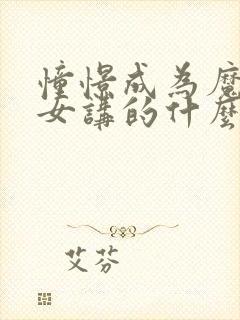 憧憬成為魔
女講的什麼
艾芬